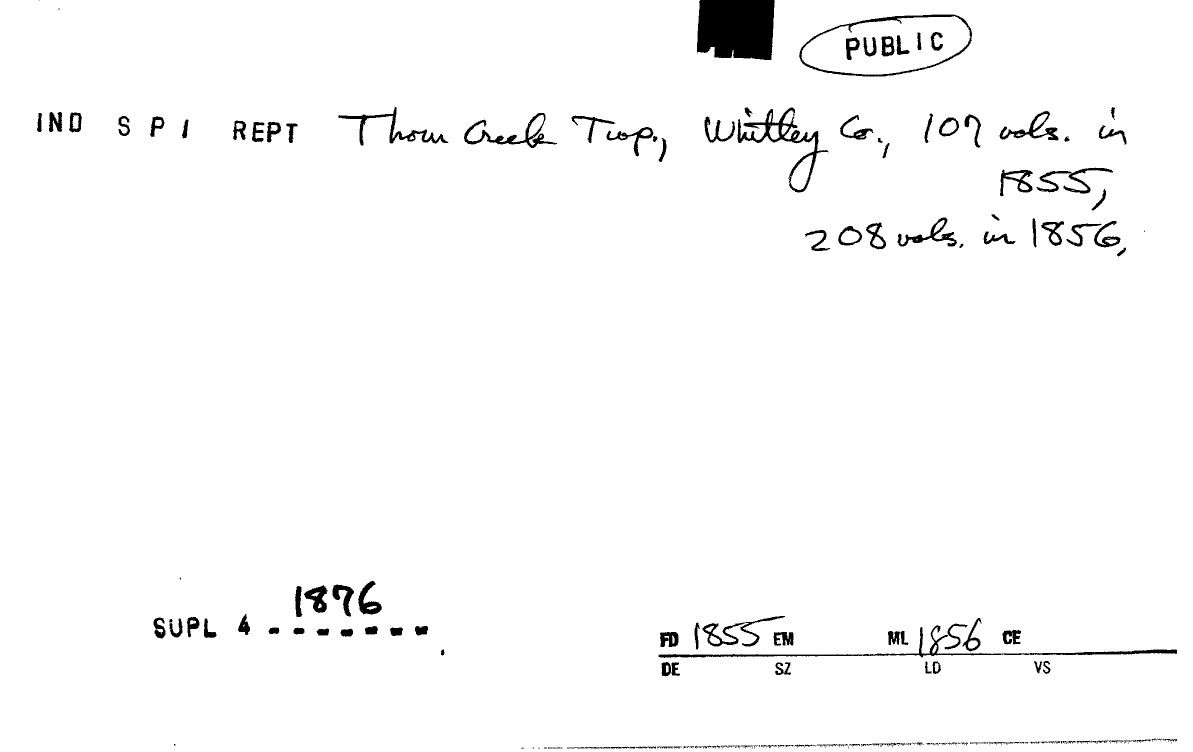 PUBLIC
IND S P I REPT Thorn Creek Twp., Whitley Co., 107 vols. in
1855,
208 vols. in 1856,
1876
SUPL 4 - - - - - - -
FD 1855 EM ML 1856 CE
DE SZ LD VS